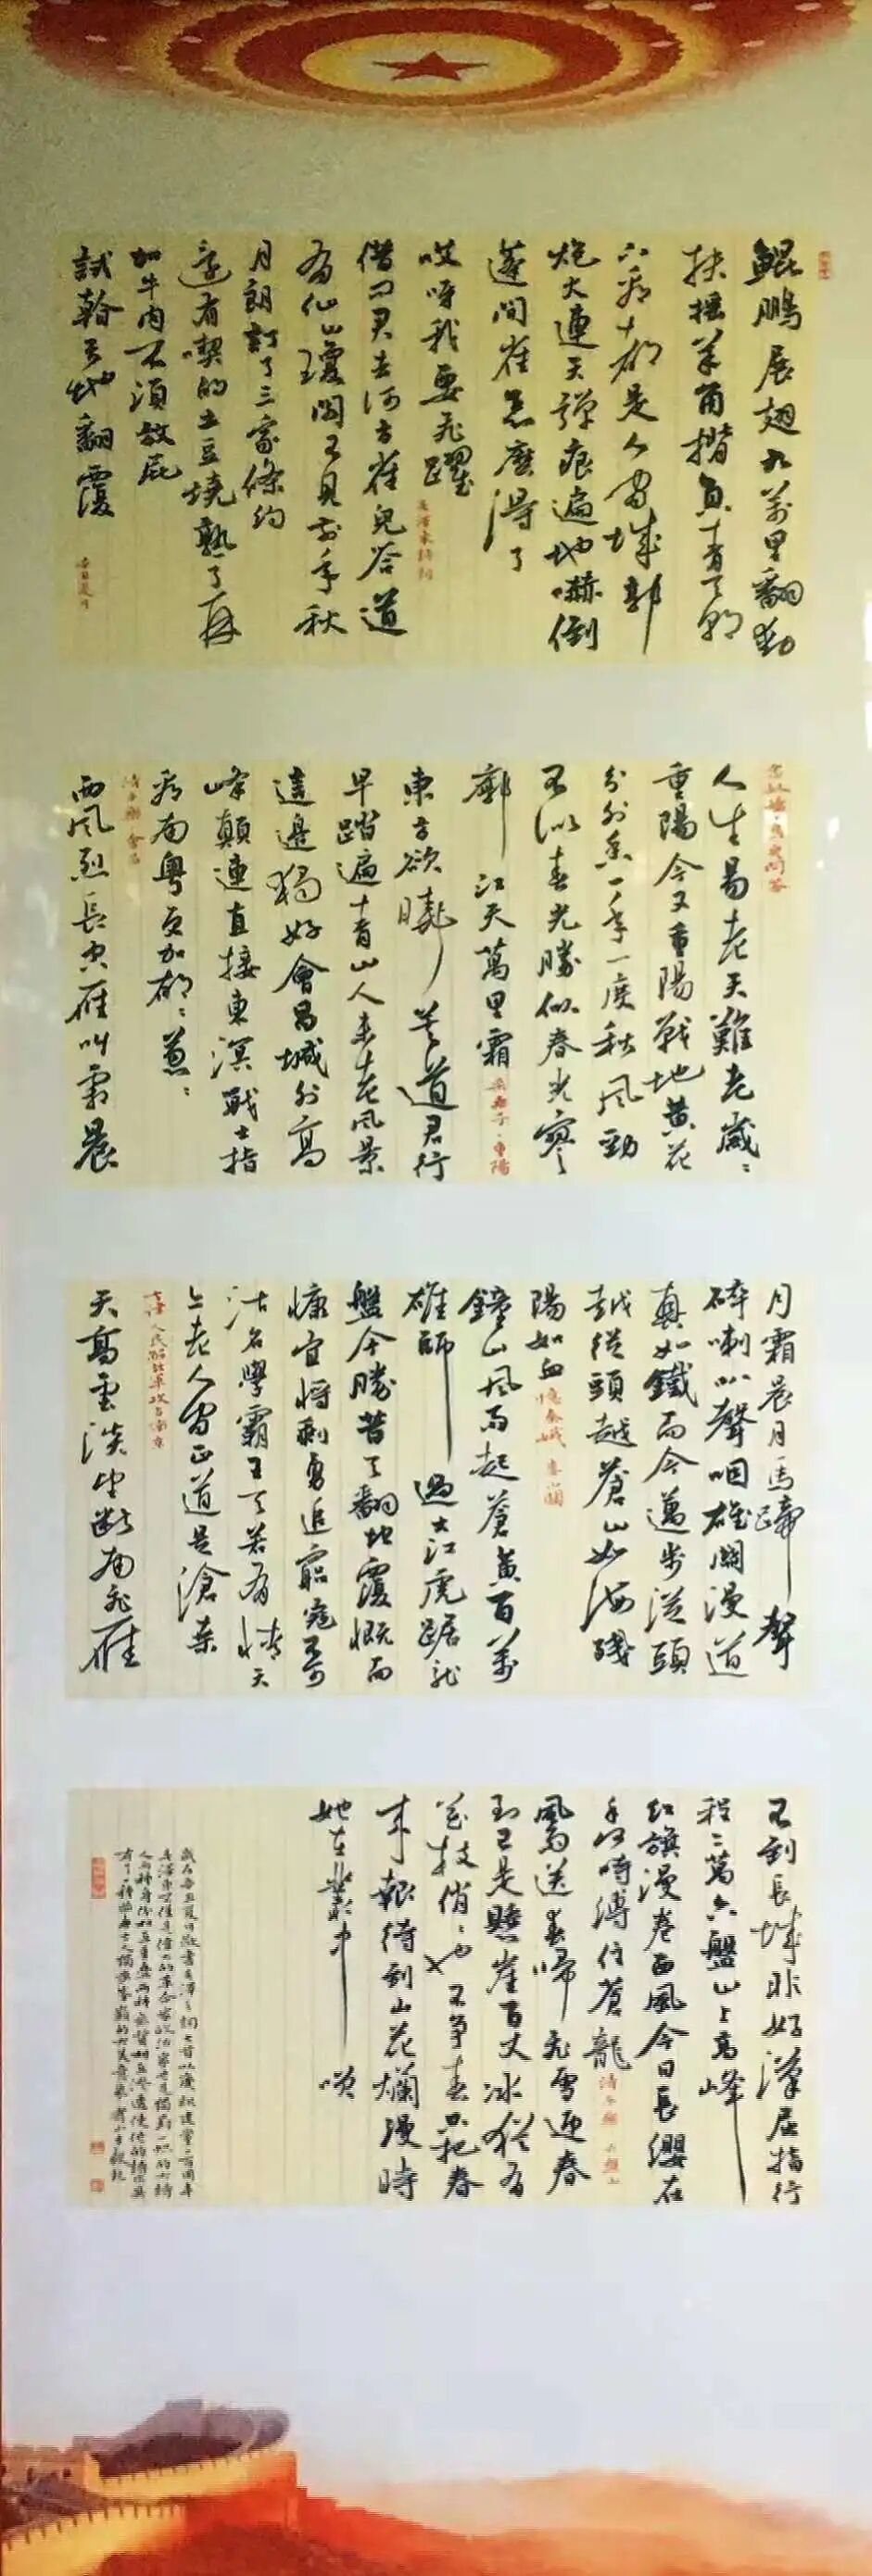 鯤鵬展翅九萬里翻動
扶搖羊角揹負青天朝
下看都是人間城郭
炮火連天彈痕遍地嚇倒
蓬間雀怎麼得了
哎呀我要飛躍
毛澤東詩詞
借問君去何方雀兒答道
有仙山瓊閣不見前年秋
月朗訂了三家條約
還有喫的土豆燒熟了再
加牛肉不須放屁
試看天地翻覆
念奴嬌·鳥兒問答
人生易老天難老歲〻
重陽今又重陽戰地黃花
分外香一年一度秋風勁
不似春光勝似春光寥
廓江天萬里霜
采桑子·重陽
東方欲曉莫道君行
早踏遍青山人未老風景
這邊獨好會昌城外高
峰顛連直接東溟戰士指
看南粵更加鬱〻蔥〻
清平樂 會昌
西風烈長空雁叫霜晨
月霜晨月馬蹄聲
碎喇叭聲咽雄關漫道
真如鐵而今邁步從頭
越從頭越蒼山如海殘
陽如血
憶秦娥 婁山關
鐘山風雨起蒼黃百萬
雄師過大江虎踞龍
盤今勝昔天翻地覆慨而
慷宜將剩勇追窮寇不可
沽名學霸王天若有情天
亦老人間正道是滄桑
七律 人民解放軍攻占南京
天高雲淡望斷南飛雁
不到長城非好漢屈指行
程二萬六盤山上高峰
紅旗漫卷西風今日長纓在
手何時縛住蒼龍
清平樂 六盤山
風雨送春歸飛雪迎春
到已是懸崖百丈冰猶有
花枝俏〻也不爭春只把春
來報待到山花爛漫時
她在叢中 笑
歲在辛丑夏月敬書毛澤東詞七首以慶祝建黨一百周年